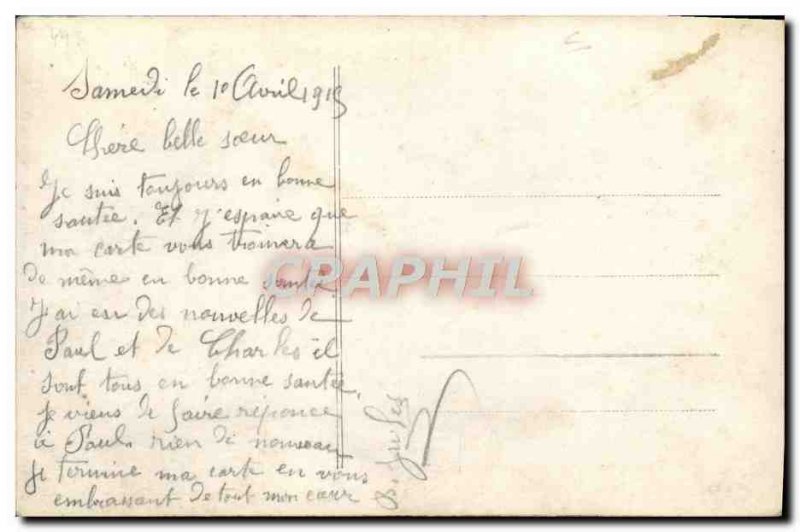 Samedi le 10 Avril 1915
Chère belle sœur
Je suis toujours en bonne
santée. Et j'espaire que
ma carte vous troinera
de même en bonne santé
J'ai eu des nouvelles de
Paul et de Charles il
sont tous en bonne santée,
je viens de faire réponce
à Paul. rien de nouveau
je termine ma carte en vous
embrassant de tout mon cœur
Jules
CPARAPHIL